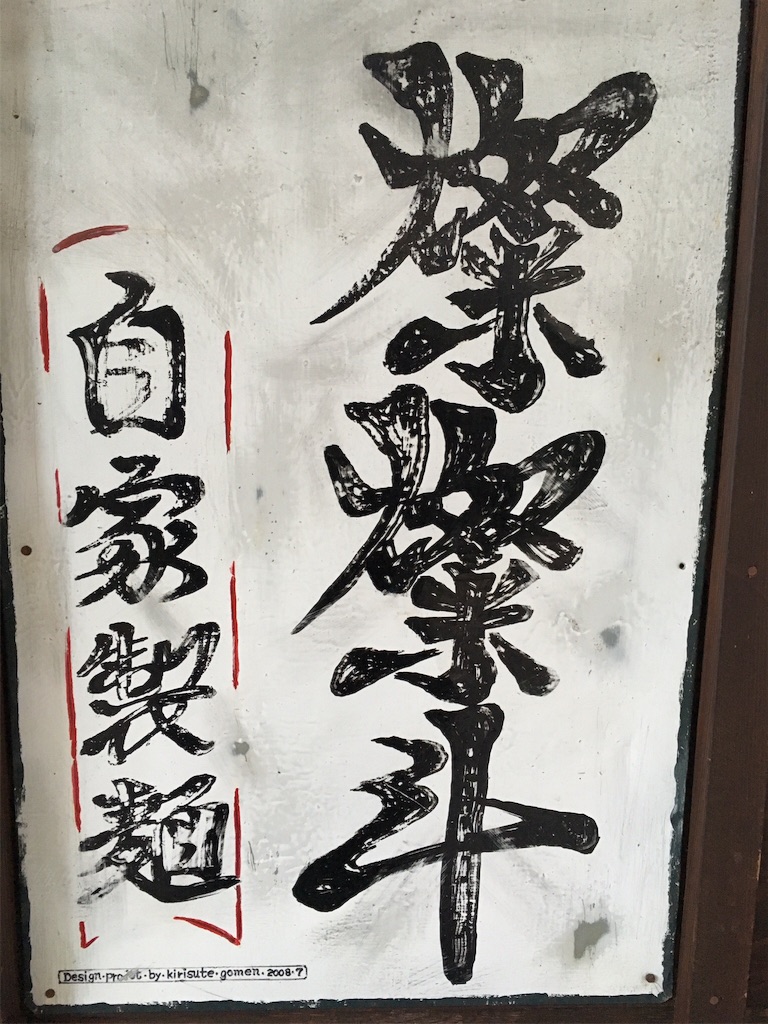 燦燦斗
自家製麺
Design・by・kirisute・gomen・2008・7